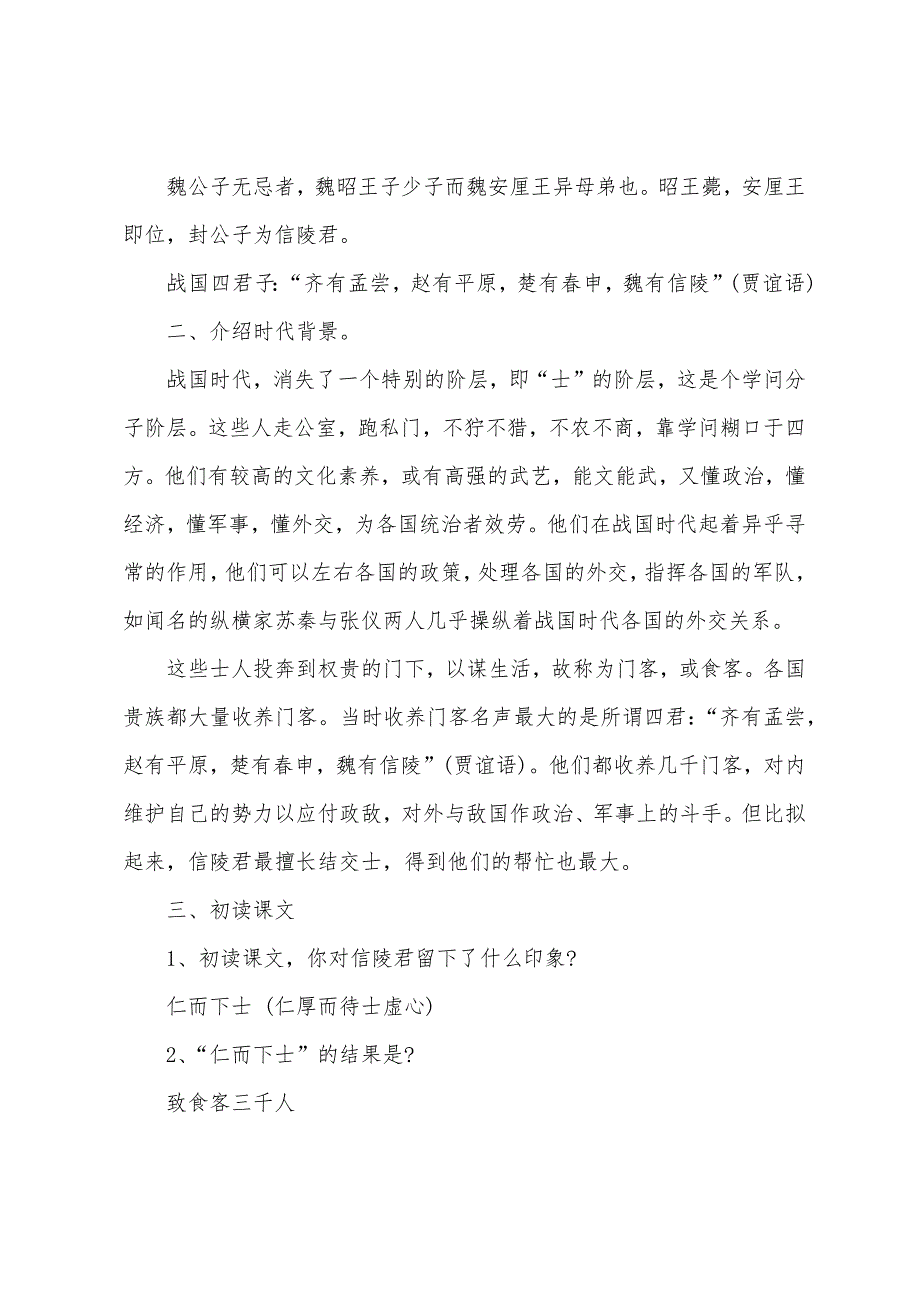 魏公子无忌者，魏昭王子少子而魏安厘王异母弟也。昭王薨，安厘王
即位，封公子为信陵君。
战国四君子：“齐有孟尝，赵有平原，楚有春申，魏有信陵”(贾谊语)
二、介绍时代背景。
战国时代，消失了一个特别的阶层，即“士”的阶层，这是个学问分
子阶层。这些人走公室，跑私门，不狞不猎，不农不商，靠学问糊口于四
方。他们有较高的文化素养，或有高强的武艺，能文能武，又懂政治，懂
经济，懂军事，懂外交，为各国统治者效劳。他们在战国时代起着异乎寻
常的作用，他们可以左右各国的政策，处理各国的外交，指挥各国的军队，
如闻名的纵横家苏秦与张仪两人几乎操纵着战国时代各国的外交关系。
这些士人投奔到权贵的门下，以谋生活，故称为门客，或食客。各国
贵族都大量收养门客。当时收养门客名声最大的是所谓四君：“齐有孟尝，
赵有平原，楚有春申，魏有信陵”(贾谊语)。他们都收养几千门客，对内
维护自己的势力以应付政敌，对外与敌国作政治、军事上的斗手。但比拟
起来，信陵君最擅长结交士，得到他们的帮忙也最大。
三、初读课文
1、初读课文，你对信陵君留下了什么印象?
仁而下士 (仁厚而待士虚心)
2、“仁而下士”的结果是?
致食客三千人